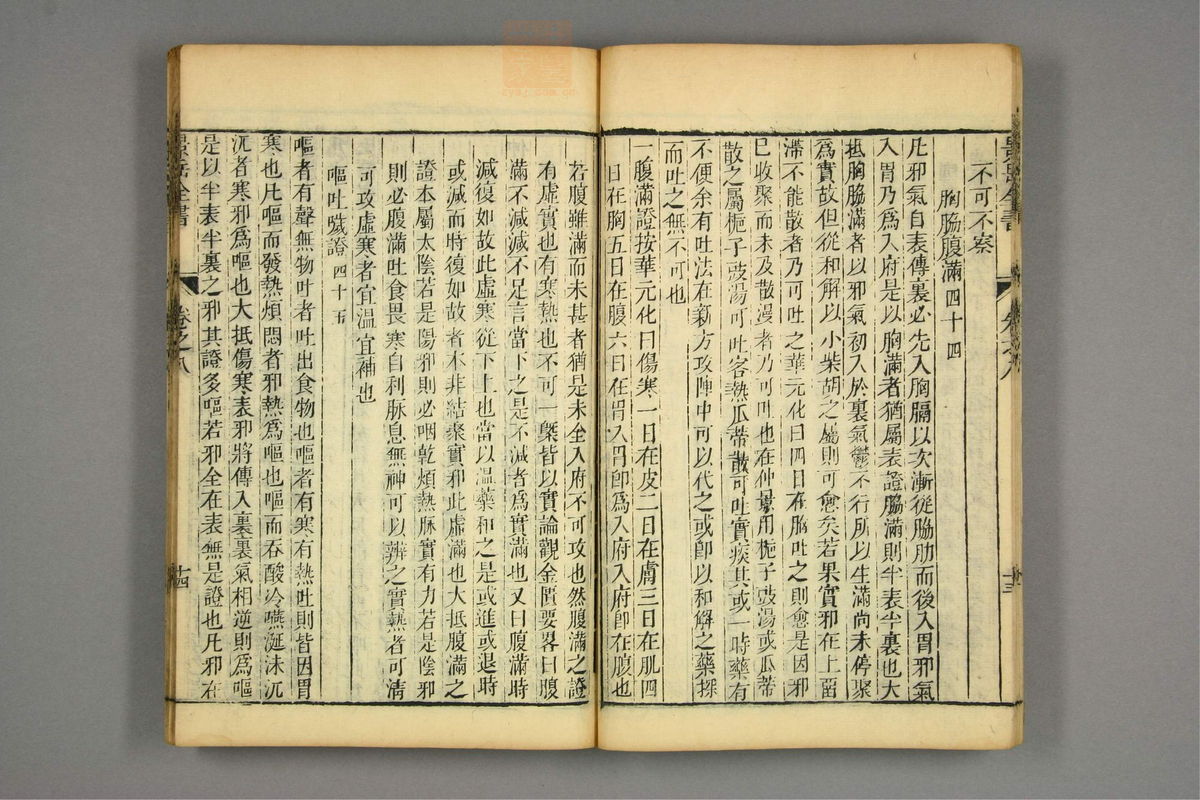 不可不察
胸脇腹滿四十四
凡邪氣自表傳裏必先入胸膈以次漸從脇肋而後入胃邪氣
入胃乃爲入府是以胸滿者猶屬表證脇滿則半表半裏也大
抵胸脇滿者以邪氣初入於裏氣鬱不行所以生滿尚未停聚
爲實故但從和解以小柴胡之屬則可愈矣若果實邪在上留
滯不能散者乃可吐之華元化曰四日在胸吐之則愈是因邪
已收聚而未及散漫者乃可吐也在仲景用梔子豉湯或瓜蒂
散之屬梔子豉湯可吐客熱瓜蒂散可吐實痰其或一時藥有
不便余有吐法在新方攻陣中可以代之或卽以和解之藥探
而吐之無不可也
一腹滿證按華元化曰傷寒一日在皮二日在膚三日在肌四
日在胸五日在腹六日在胃入胃卽爲入府入府卽在腹也
若腹雖滿而未甚者猶是未全入府不可攻也然腹滿之證
有虛實也有寒熱也不可一槩皆以實論觀金匱要畧曰腹
滿不減減不足言當下之是不減者爲實滿也又曰腹滿時
減復如故此虛寒從下上也當以温藥和之是或進或退時
或減而時復如故者本非結聚實邪此虛滿也大抵腹滿之
證本屬太陰若是陽邪則必咽乾煩熱脉實有力若是陰邪
則必腹滿吐食畏寒自利脉息無神可以辨之實熱者可清
可攻虛寒者宜温宜補也
嘔吐噦證四十五
嘔者有聲無物吐者吐出食物也嘔者有寒有熱吐則皆因胃
寒也凡嘔而發熱煩悶者邪熱爲嘔也嘔而吞酸冷嚥涎沫沉
沉者寒邪爲嘔也大抵傷寒表邪將傳入裏裏氣相逆則爲嘔
是以半表半裏之邪其證多嘔若邪全在表無是證也凡邪在
景岳全書
卷之八
卄三
景岳全書
卷之八
卄四
zysj.com.cn